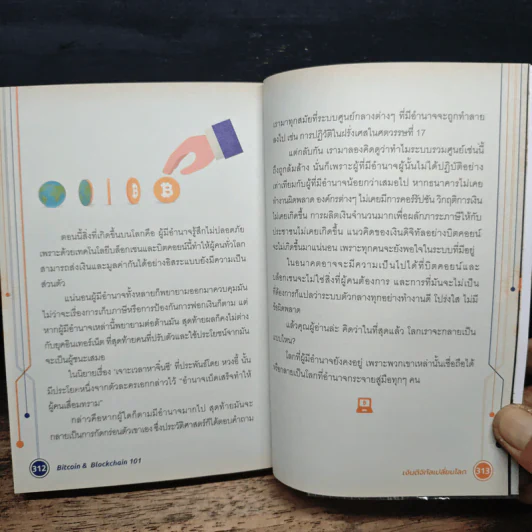 ตอนนี้สิ่งที่เกิดขึ้นบนโลกคือ ผู้มีอำนาจรู้สึกไม่ปลอดภัย
เพราะด้วยเทคโนโลยีบล็อกเชนและบิตคอยน์นี้ทำให้คนทั่วโลก
สามารถส่งเงินและมูลค่ากันได้อย่างอิสระแบบยังมีความเป็น
ส่วนตัว
แน่นอนผู้มีอำนาจทั้งหลายก็พยายามออกมาควบคุมมัน
ไม่ว่าจะเรื่องการเก็บภาษีหรือการป้องกันการฟอกเงินก็ตาม แต่
หากผู้มีอำนาจเหล่านี้พยายามต่อต้านมัน สุดท้ายผลก็คงไม่ต่าง
กับยุคอินเทอร์เน็ต ที่สุดท้ายคนที่ปรับตัวและใช้ประโยชน์จากมัน
จะเป็นผู้ชนะเสมอ
ในนิยายเรื่อง 'เจาะเวลาหาจิ๋นซี' ที่ประพันธ์โดย หวงอี้ นั้น
มีประโยคหนึ่งจากตัวละครเอกกล่าวไว้ "อำนาจเบ็ดเสร็จทำให้
ผู้คนเสื่อมทราม"
กล่าวคือหากผู้ใดก็ตามมีอำนาจมากไป สุดท้ายมันจะ
กลายเป็นการกัดกร่อนตัวเขาเอง ซึ่งประวัติศาสตร์ก็ได้ตอบคำถาม
312 Bitcoin & Blockchain 101
เรามาทุกสมัยที่ระบบศูนย์กลางต่างๆ ที่มีอำนาจจะถูกทำลาย
ลงไป เช่น การปฏิวัติในฝรั่งเศสในศตวรรษที่ 17
แต่กลับกัน เรามาลองคิดดูว่าทำไมระบบรวมศูนย์เช่นนี้
ถึงถูกล้มล้าง นั่นก็เพราะผู้ที่มีอำนาจผู้นั้นไม่ได้ปฏิบัติอย่าง
เท่าเทียมกับผู้ที่มีอำนาจน้อยกว่าเสมอไป หากธนาคารไม่เคย
ทำงานผิดพลาด องค์กรต่างๆ ไม่เคยมีการคอร์รัปชัน วิกฤติการเงิน
ไม่เคยเกิดขึ้น การผลิตเงินจำนวนมากเพื่อผลักภาระภาษีให้กับ
ประชาชนไม่เคยเกิดขึ้น แนวคิดของเงินดิจิทัลอย่างบิตคอยน์
จะไม่เกิดขึ้นมาแน่นอน เพราะทุกคนจะยังพอใจในระบบที่มีอยู่
ในอนาคตอาจจะมีความเป็นไปได้ที่บิตคอยน์และ
บล็อกเชนจะไม่ใช่สิ่งที่ผู้คนต้องการ และการที่มันจะไม่เป็น
ที่ต้องการก็แปลว่าระบบตัวกลางทุกอย่างทำงานดี โปร่งใส ไม่มี
ข้อผิดพลาด
แล้วคุณผู้อ่านล่ะ คิดว่าในที่สุดแล้ว โลกเราจะกลายเป็น
แบบไหน?
โลกที่ผู้มีอำนาจยังคงอยู่ เพราะพวกเขาเหล่านั้นเชื่อถือได้
หรือกลายเป็นโลกที่อำนาจกระจายสู่มือทุกๆ คน
เงินดิจิทัลเปลี่ยนโลก 313